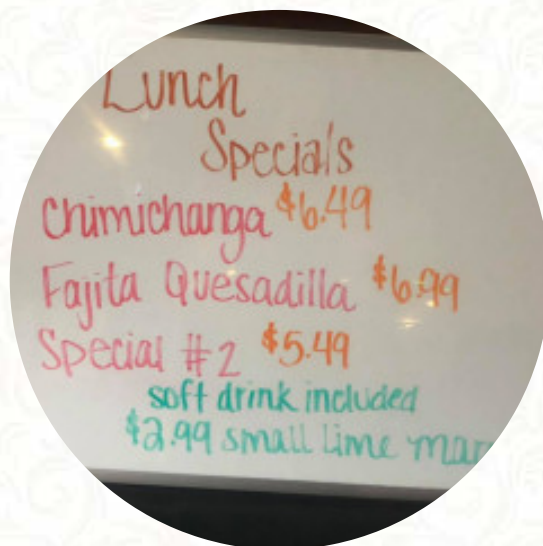 Lunch
Specials
Chimichanga $6.49
Fajita Quesadilla $6.99
Special #2 $5.49
soft drink included
$2.99 small lime mar